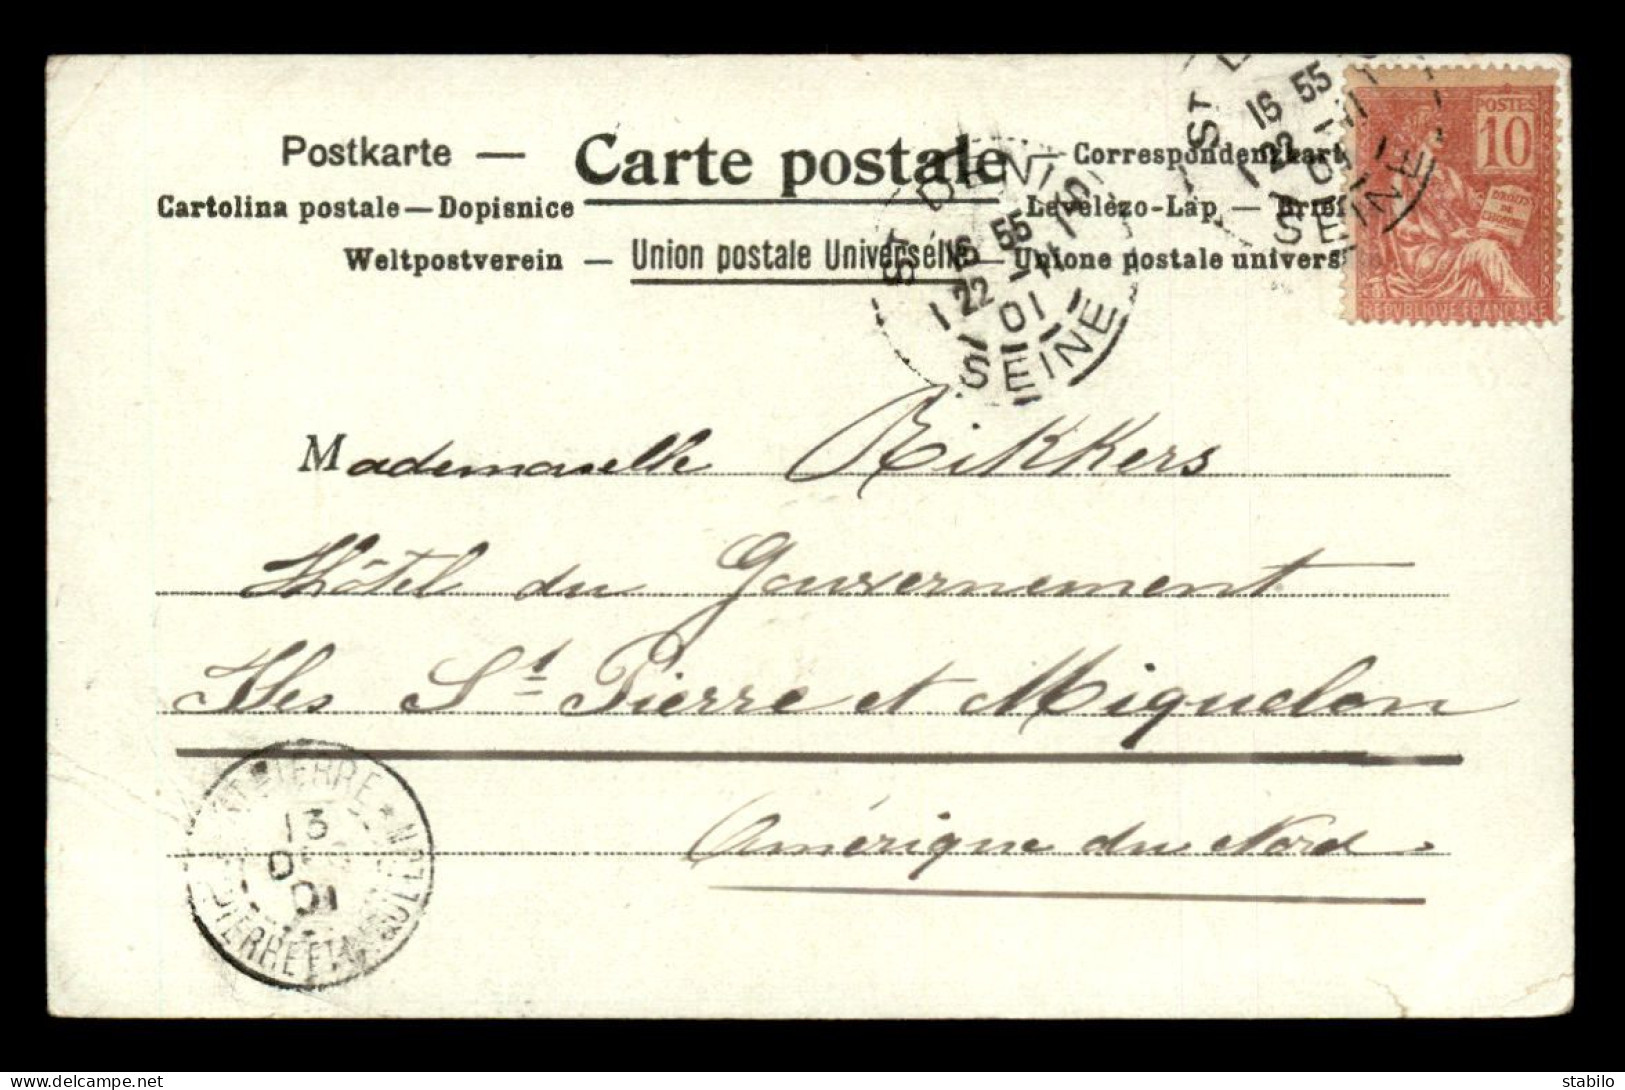 Postkarte — Carte postale — Correspondenzkart
Cartolina postale — Dopisnice Levelezo-Lap — Brief
Weltpostverein — Union postale Universelle — Unione postale univers
ST DENIS
16 55
22 -11
01
SEINE
ST D
16 55
22 -11
01
SEINE
POSTES
10
DROITS DE L'HOMME
REPVBLIQVE FRANÇAISE
Mademoiselle Rikkers
Hôtel du Gouvernement
Iles St Pierre et Miquelon
Amérique du Nord.
ST PIERRE
13
DEC
01
PIERRE ET MIQUELON
stabilo
delcampe.net